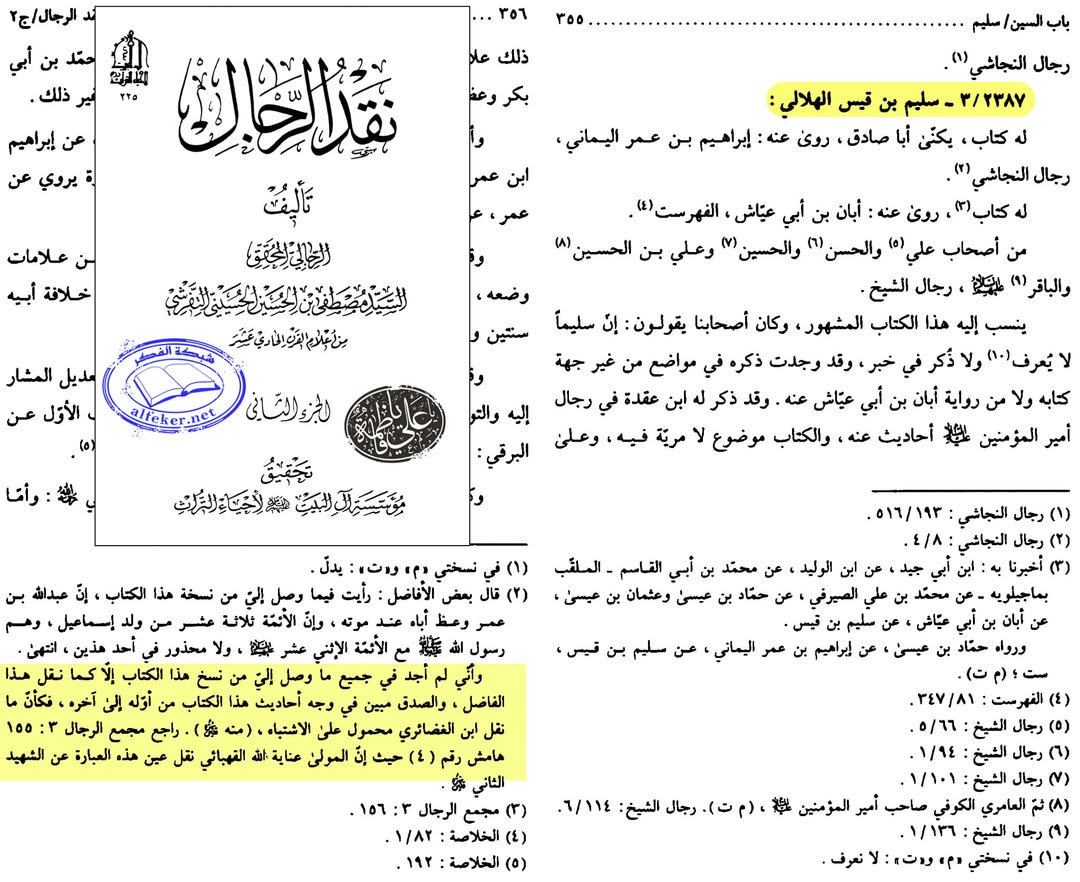 باب السين/ سليم ........................................ ٣٥٥
رجال النجاشي(١) .
٣/٢٣٨٧ ـ سليم بن قيس الهلالي :
له كتاب ، يكنّىٰ أبا صادق ، روىٰ عنه : إبراهـيم بـن عـمر اليـماني ،
رجال النجاشي(٢) .
له كتاب(٣) ، روىٰ عنه : أبان بن أبي عيّاش ، الفهرست(٤) .
من أصحاب علي(٥) والحسن(٦) والحسين(٧) وعـلي بـن الحسـين(٨)
والباقر(٩) عليهم السلام ، رجال الشيخ .
ينسب إليه هذا الكتاب المشهور ، وكان أصحابنا يقولـون : إنّ سليماً
لا يُعرف(١٠) ولا ذُكر في خبر ، وقد وجدت ذكره في مواضع من غير جهة
كتابه ولا من رواية أبان بن أبي عيّاش عنه . وقد ذكر له ابن عقدة في رجال
أمير المؤمنين عليه السلام أحاديث عنه ، والكتاب موضوع لا مريّة فـيـه ، وعـلىٰ
(١) رجال النجاشي : ٥١٦/١٩٣ .
(٢) رجال النجاشي : ٤/٨ .
(٣) أخبرنا به : ابن أبي جيد ، عن ابن الوليد ، عن محمّد بن أبـي القـاسم ـ المـلقّب
بماجيلويه ـ عن محمّد بن علي الصيرفي ، عن حمّاد بن عيسىٰ وعثمان بن عيسىٰ ،
عن أبان بن أبي عيّاش ، عن سليم بن قيس .
ورواه حمّاد بن عيسىٰ ، عن إبراهيم بن عمر اليماني ، عـن سـليم بن قـيس ،
ست ؛ (م ت) .
(٤) الفهرست : ٣٤٧/٨١ .
(٥) رجال الشيخ : ٥/٦٦ .
(٦) رجال الشيخ : ١/٩٤ .
(٧) رجال الشيخ : ١/١٠١ .
(٨) ثمّ العامري الكوفي صاحب أمير المؤمنين عليه السلام ، (م ت). رجال الشيخ: ٦/١١٤ .
(٩) رجال الشيخ : ١/١٣٦ .
(١٠) في نسختي «م» و«ت» : لا نعرف .
٣٥٦ ... قد الرجال/ج٢
ذلك علا حمّد بن أبي
بكر وعظ غير ذلك .
وأ ، عن إبراهيم
ابن عمر ة يروي عن
عمر ، عر
وق ـن عـلامات
وضعه ، خـلافة أبـيه
سنتين و
وق عديل المشار
إليه والتو الأوّل عـن
البرقي : (٥) .
وك : وأمّا
٢٢٥
نقد الرجال
تأليف
الرجالي المحقق
السيد مصطفى بن الحسين الحسيني التفرشي
من أعلام القرن الحادي عشر
شبكة الفكر
alfeker.net
الجزء الثاني
تحقيق
مؤسسة آل البيت عليهم السلام لإحياء التراث
(١) في نسختي «م» و«ت» : يدلّ .
(٢) قال بعض الأفاضل : رأيت فيما وصل إليّ من نسخة هذا الكتاب ، إنّ عبدالله بـن
عمـر وعـظ أباه عنـد موته ، وإنّ الأئمّة ثلاثـة عشـر مـن ولد إسـماعيل ، وهـم
رسول الله صلى الله عليه وآله مع الأئمّة الإثني عشر عليهم السلام ، ولا محذور في أحد هذين ، انتهىٰ .
وأنّي لم أجد في جميع ما وصل إليّ من نسخ هذا الكتاب إلّا كـما نـقل هـذا
الفاضل ، والصدق مبين في وجه أحاديث هذا الكتاب من أوّله إلىٰ آخره ، فكأنّ ما
نقل ابن الغضائري محمول علىٰ الاشتباه ، (منه قدس سره) . راجع مجمع الرجال ٣ : ١٥٥
هامش رقم (٤) حيث إنّ المولىٰ عناية الله القهبائي نقل عين هذه العبارة عن الشهيد
الثاني قدس سره .
(٣) مجمع الرجال ٣ : ١٥٦ .
(٤) الخلاصة : ١/٨٢ .
(٥) الخلاصة : ١٩٢ .